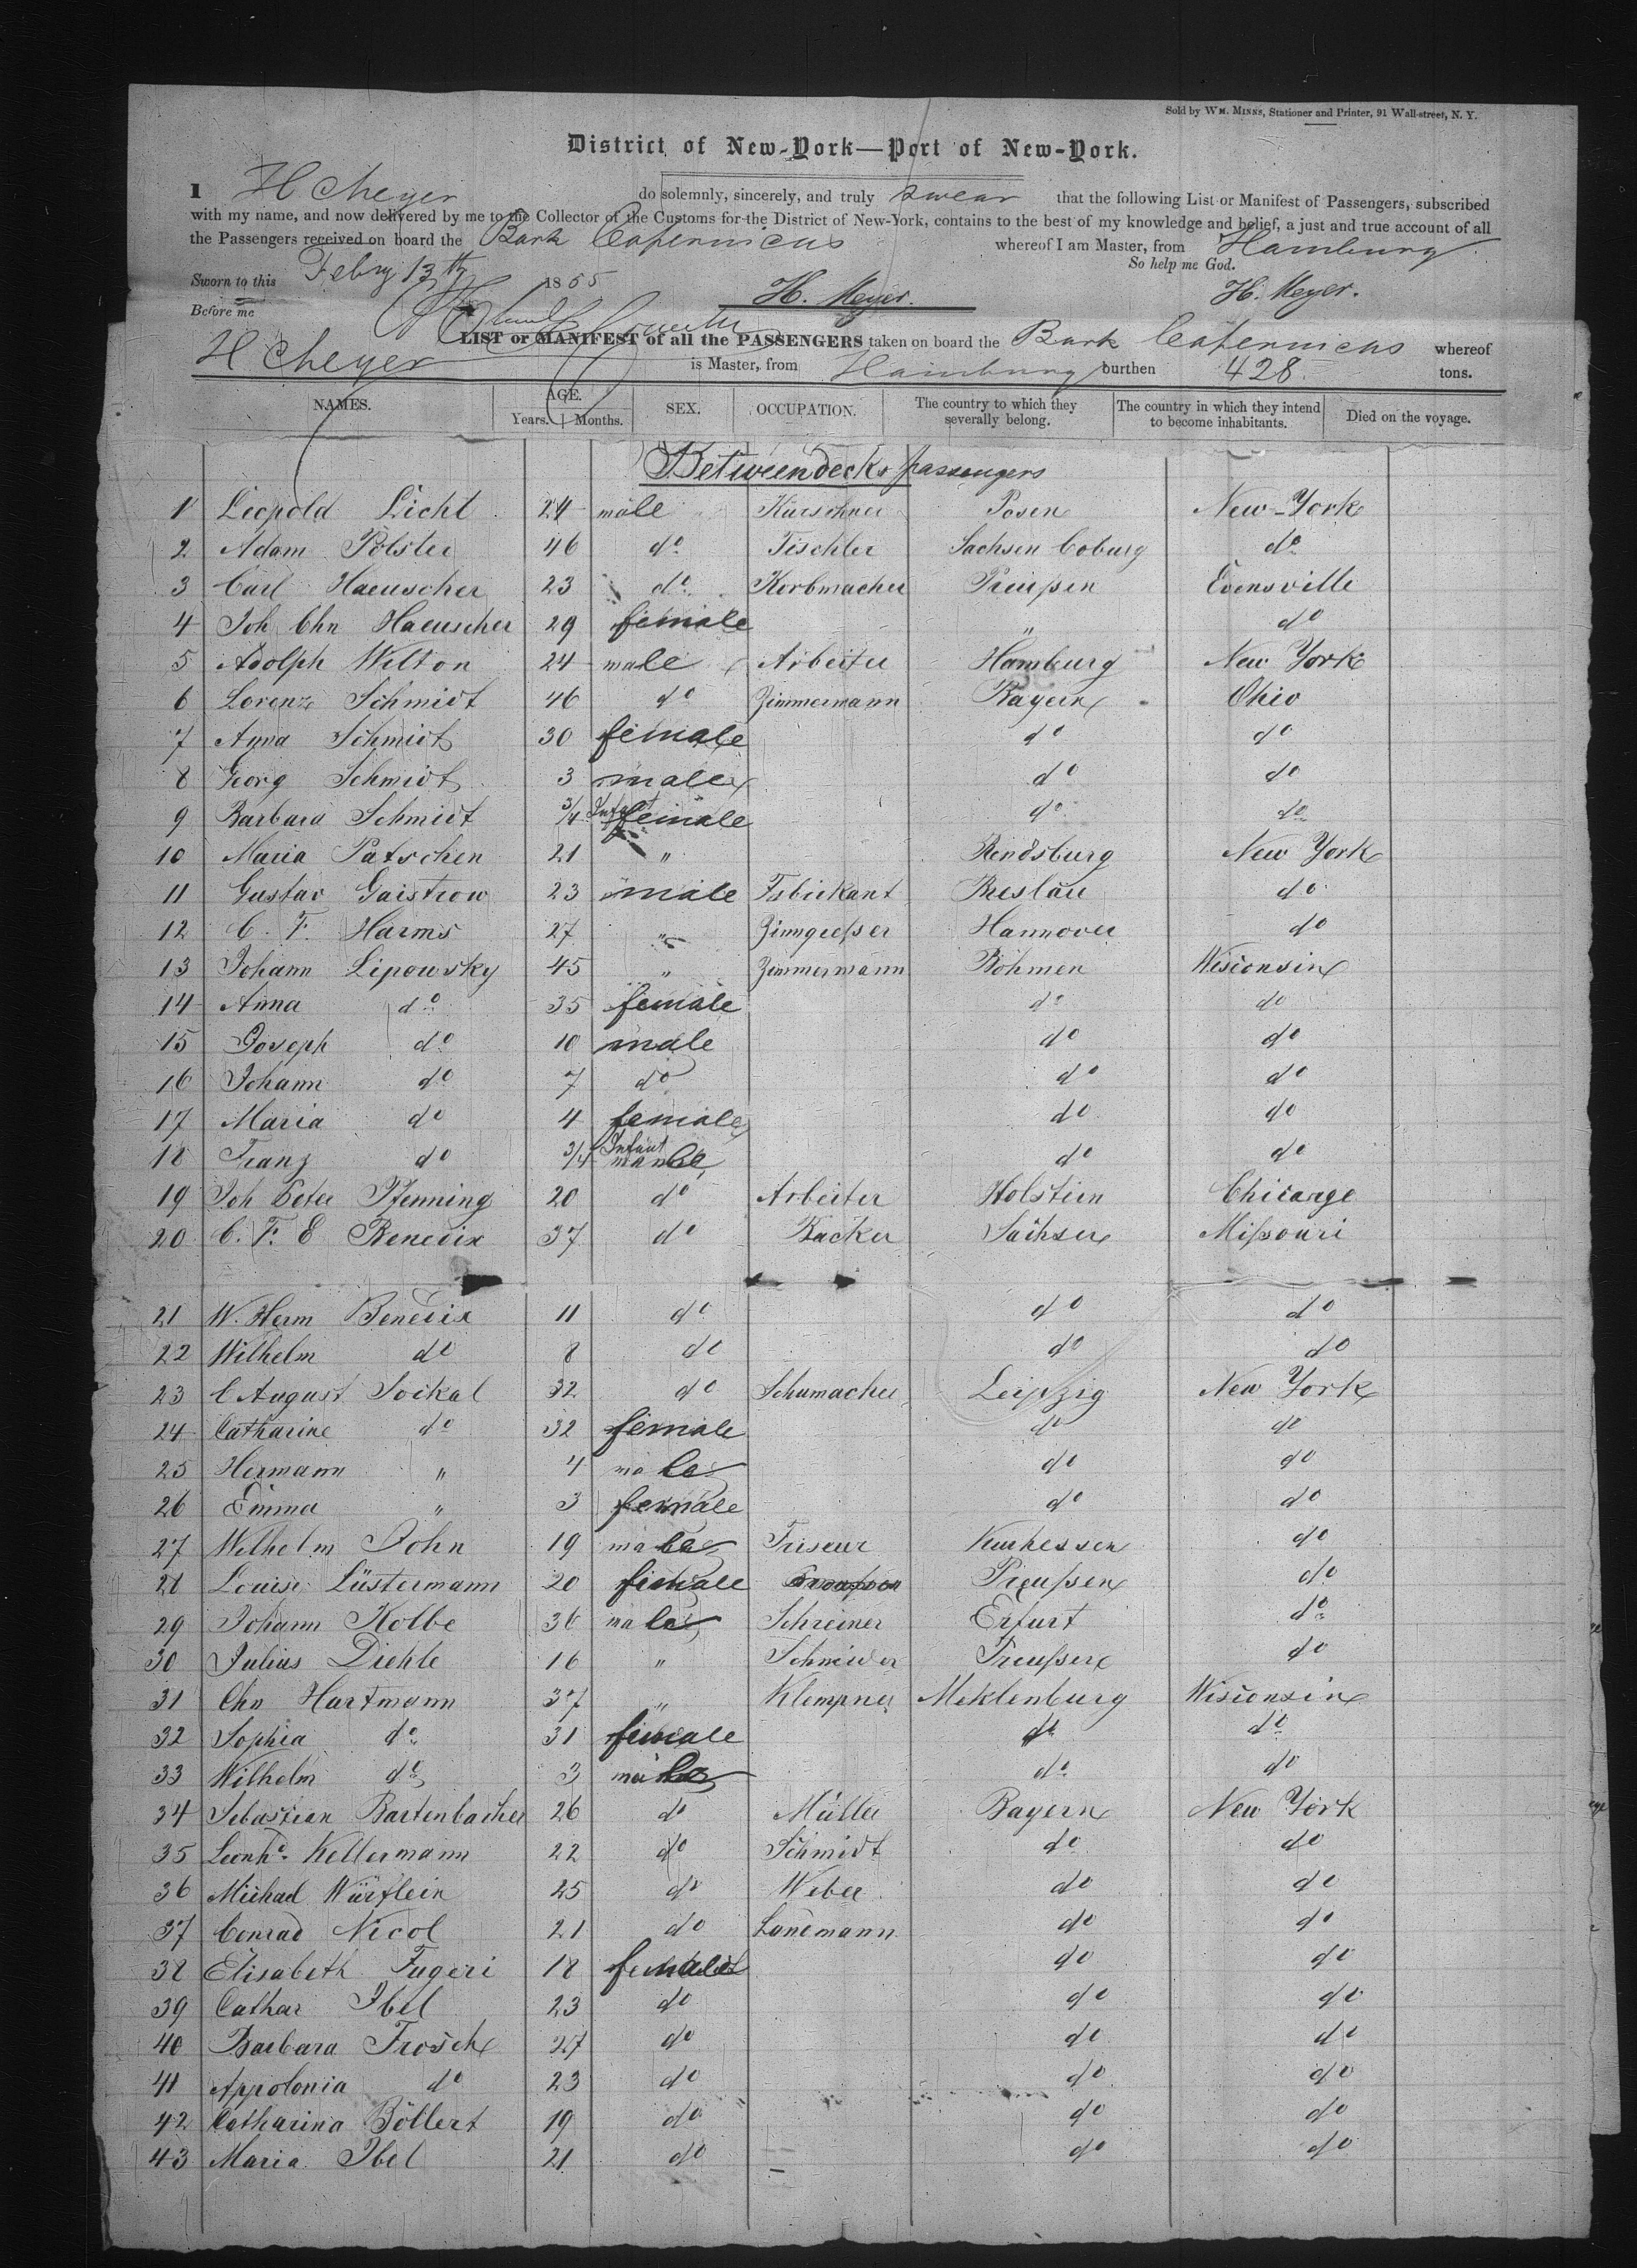 Sold by WM. MINNS, Stationer and Printer, 91 Wall-street, N. Y.
District of New-York—Port of New-York.
I H Meyer do solemnly, sincerely, and truly swear that the following List or Manifest of Passengers, subscribed
with my name, and now delivered by me to the Collector of the Customs for the District of New-York, contains to the best of my knowledge and belief, a just and true account of all
the Passengers received on board the Bark Copernicus whereof I am Master, from Hamburg
So help me God.
Sworn to this Febry 13th 1855 H. Meyer. H. Meyer.
Before me
LIST or MANIFEST of all the PASSENGERS taken on board the Bark Copernicus whereof
H Meyer is Master, from Hamburg burthen 428 tons.
NAMES. AGE. Years. Months. SEX. OCCUPATION. The country to which they severally belong. The country in which they intend to become inhabitants. Died on the voyage.
Betweendecks passengers
1 Leopold Licht 24 male Kürschner Posen New-York
2 Adam Polster 46 do Tischler Sachsen Coburg do
3 Carl Haeuscher 23 do Korbmacher Preußen Evensville
4 Joh Chn Haeuscher 29 female " do
5 Adolph Wilton 24 male Arbeiter Hamburg New York
6 Lorenz Schmidt 46 do Zimmermann Bayern Ohio
7 Anna Schmidt 30 female do do
8 Georg Schmidt 3 male do do
9 Barbara Schmidt 3/4 Infant female do do
10 Maria Patschen 21 " Rendsburg New York
11 Gustav Gaistrow 23 male Fabrikant Breslau do
12 C. F. Harms 27 " Zinngießer Hannover do
13 Johann Lipowsky 45 " Zimmermann Böhmen Wisconsin
14 Anna do 35 female do do
15 Joseph do 10 male do do
16 Johann do 7 do do do
17 Maria do 4 female do do
18 Franz do 3/4 Infant male do do
19 Joh Peter Pfenning 20 do Arbeiter Holstein Chicargo
20 C. F. E Benedix 37 do Backer Sachsen Mißouri
21 W. Herm Benedix 11 do do do
22 Wilhelm do 8 do do do
23 C August Soikal 32 do Schumacher Leipzig New York
24 Catharine do 32 female do do
25 Hermann " 4 male do do
26 Emma " 3 female do do
27 Wilhelm John 19 male Friseur Kurhessen do
28 Louise Lüstermann 20 female Preußen do
29 Johann Kolbe 36 male Schreiner Erfurt do
30 Julius Diehle 16 " Schneider Preußen do
31 Chn Hartmann 37 " Klempner Meklenburg Wisconsin
32 Sophia do 31 female do do
33 Wilhelm do 3 male do do
34 Sebastian Bartenbacher 26 do Müller Bayern New York
35 Leonhd Kellermann 22 do Schmidt do do
36 Michael Würflein 25 do Weber do do
37 Conrad Nicol 21 do Landmann do do
38 Elisabeth Fugeri 18 female do do
39 Cathar Ibel 23 do do do
40 Barbara Frosch 27 do do do
41 Appolonia do 23 do do do
42 Catharina Böllert 19 do do do
43 Maria Ibel 21 do do do